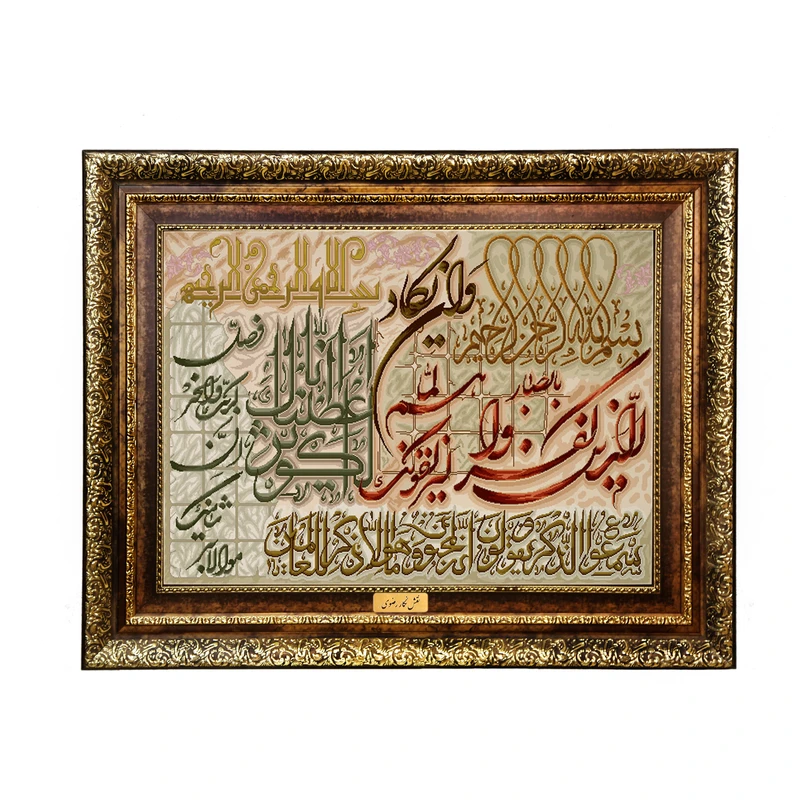 بسم الله الرحمن الرحیم
وان یکاد
الذین کفروا
لیزلقونک
بابصارهم
لما
سمعوا الذکر ویقولون انه لمجنون وما هو الا ذکر للعالمین
بسم الله الرحمن الرحیم
انا اعطیناک الکوثر
فصل
لربک وانحر
ان
شانئک
هو الابتر
نقش نگار رضوی